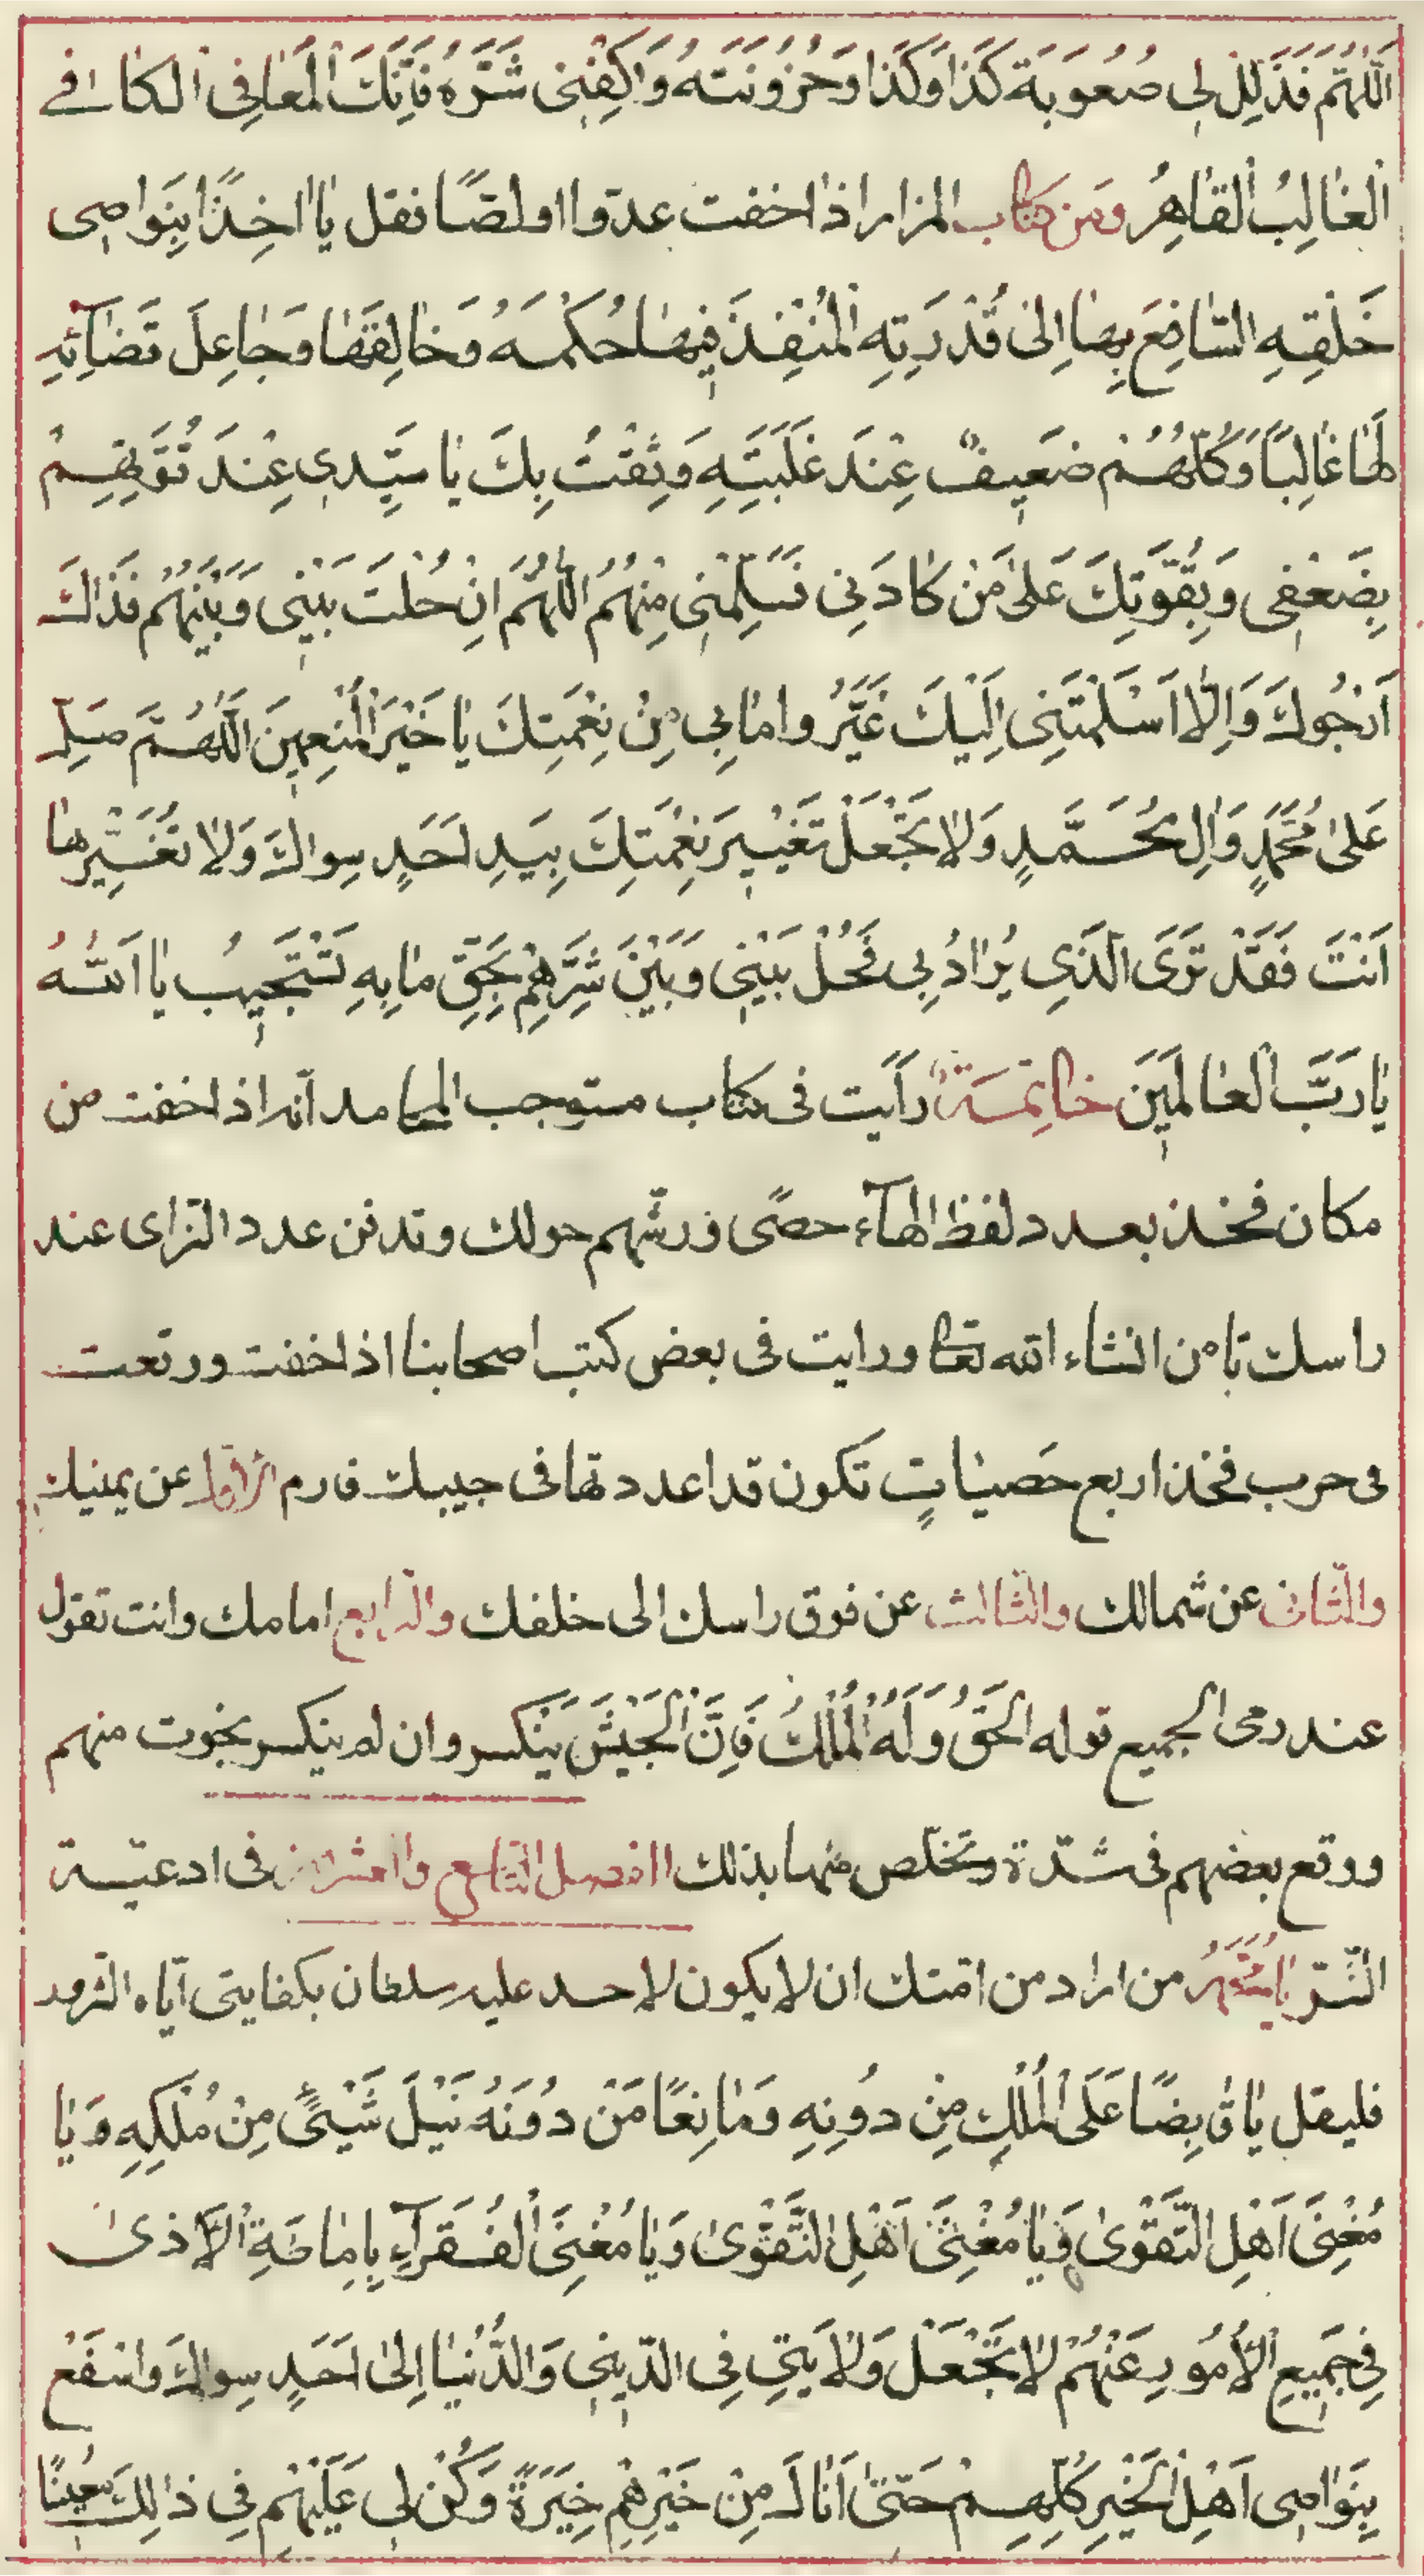 اَللّٰهُمَّ فَذَلِّلْ لِي صُعُوبَةَ كَذَا وَكَذَا وَحُزُونَتَهُ وَاكْفِنِي شَرَّهُ فَاِنَّكَ الْمُعَافِي الكافي
الْغَالِبُ الْقَاهِرُ ومن كتاب المزار اذا خفت عدوا او لصّا فقل يا اخِذًا بِنَواصِي
خَلْقِهِ السّافِعَ بِها اِلى قُدْرَتِهِ الْمُنْفِذَ فِيها حُكْمَهُ وَخالِقَها وَجاعِلَ قَضآئِهِ
لَها غالِبًا وَكُلُّهُمْ ضَعِيفٌ عِنْدَ غَلَبَتِهِ وَثِقْتُ بِكَ يا سَيِّدِي عِنْدَ قُوَّتِهِمْ
بِضَعْفِي وَبِقُوَّتِكَ عَلى مَنْ كادَنِي فَسَلِّمْنِي مِنْهُمْ اَللّٰهُمَّ اِنْ حُلْتَ بَيْنِي وَبَيْنَهُمْ فَذاكَ
اَرْجُوكَ وَاِلّا اَسْلَمْتَنِي اِلَيْكَ غَيَّرُوا ما بِي مِنْ نِعْمَتِكَ يا خَيْرَ الْمُنْعِمِينَ اَللّٰهُمَّ صَلِّ
عَلى مُحَمَّدٍ وَالِ مُحَمَّدٍ وَلا تَجْعَلْ تَغْيِيرَ نِعْمَتِكَ بِيَدِ اَحَدٍ سِواكَ وَلا تُغَيِّرْها
اَنْتَ فَقَدْ تَرَى الَّذِي يُرادُ بِي فَحُلْ بَيْنِي وَبَيْنَ شَرِّهِمْ بِحَقِّ ما بِهِ تَسْتَجِيبُ يا اَللّٰهُ
يا رَبَّ الْعالَمِينَ خاتِمَةٌ رأيت في كتاب مستوجب المحامد انه اذا خفت من
مكان فخذ بعدد لفظ الهآء حصًى ورشّهم حولك وتدفن عدد الزاى عند
راسك تامن انشاء الله تعا ورايت في بعض كتب اصحابنا اذا خفت ووقعت
في حرب فخذ اربع حَصَيَاتٍ تكون قد اعددتها في جيبك فارم الاولى عن يمينك
والثاني عن شمالك والثالث عن فوق راسك الى خلفك والرابع امامك وانت تقول
عند رمى الجميع قوله الحَقُّ وَلَهُ الْمُلْكُ فَاِنَّ الْجَيْشَ يَنْكسر وان لم ينكسر نجوت منهم
ووقع بعضهم في شدّة وتخلص منها بذلك الفصل التاسع والعشرون في ادعية
السّرّ يا مُحَمَّدُ من اراد من امّتك ان لا يكون لاحد عليه سلطان بكفايتي اياه الشرور
فليقل يا قابِضًا عَلَى الْمُلْكِ مِنْ دُونِهِ وَمانِعًا مَنْ دُونَهُ نَيْلَ شَيْئٍ مِنْ مُلْكِهِ وَيا
مُغْنِيَ اَهْلِ التَّقْوى وَيا مُغْنِيَ اَهْلِ التَّقْوى وَيا مُغْنِيَ الْفُقَرآءِ بِاِماطَةِ الْاَذى
فِي جَمِيعِ الْاُمُورِ عَنْهُمْ لا تَجْعَلْ وَلايَتِي فِي الدِّينِ وَالدُّنْيا اِلى اَحَدٍ سِواكَ وَاسْفَعْ
بِنَواصِي اَهْلِ الْخَيْرِ كُلِّهِمْ حَتّى اَنالَ مِنْ خَيْرِهِمْ خِيَرَةً وَكُنْ لِي عَلَيْهِمْ فِي ذلِكَ مُعِينًا